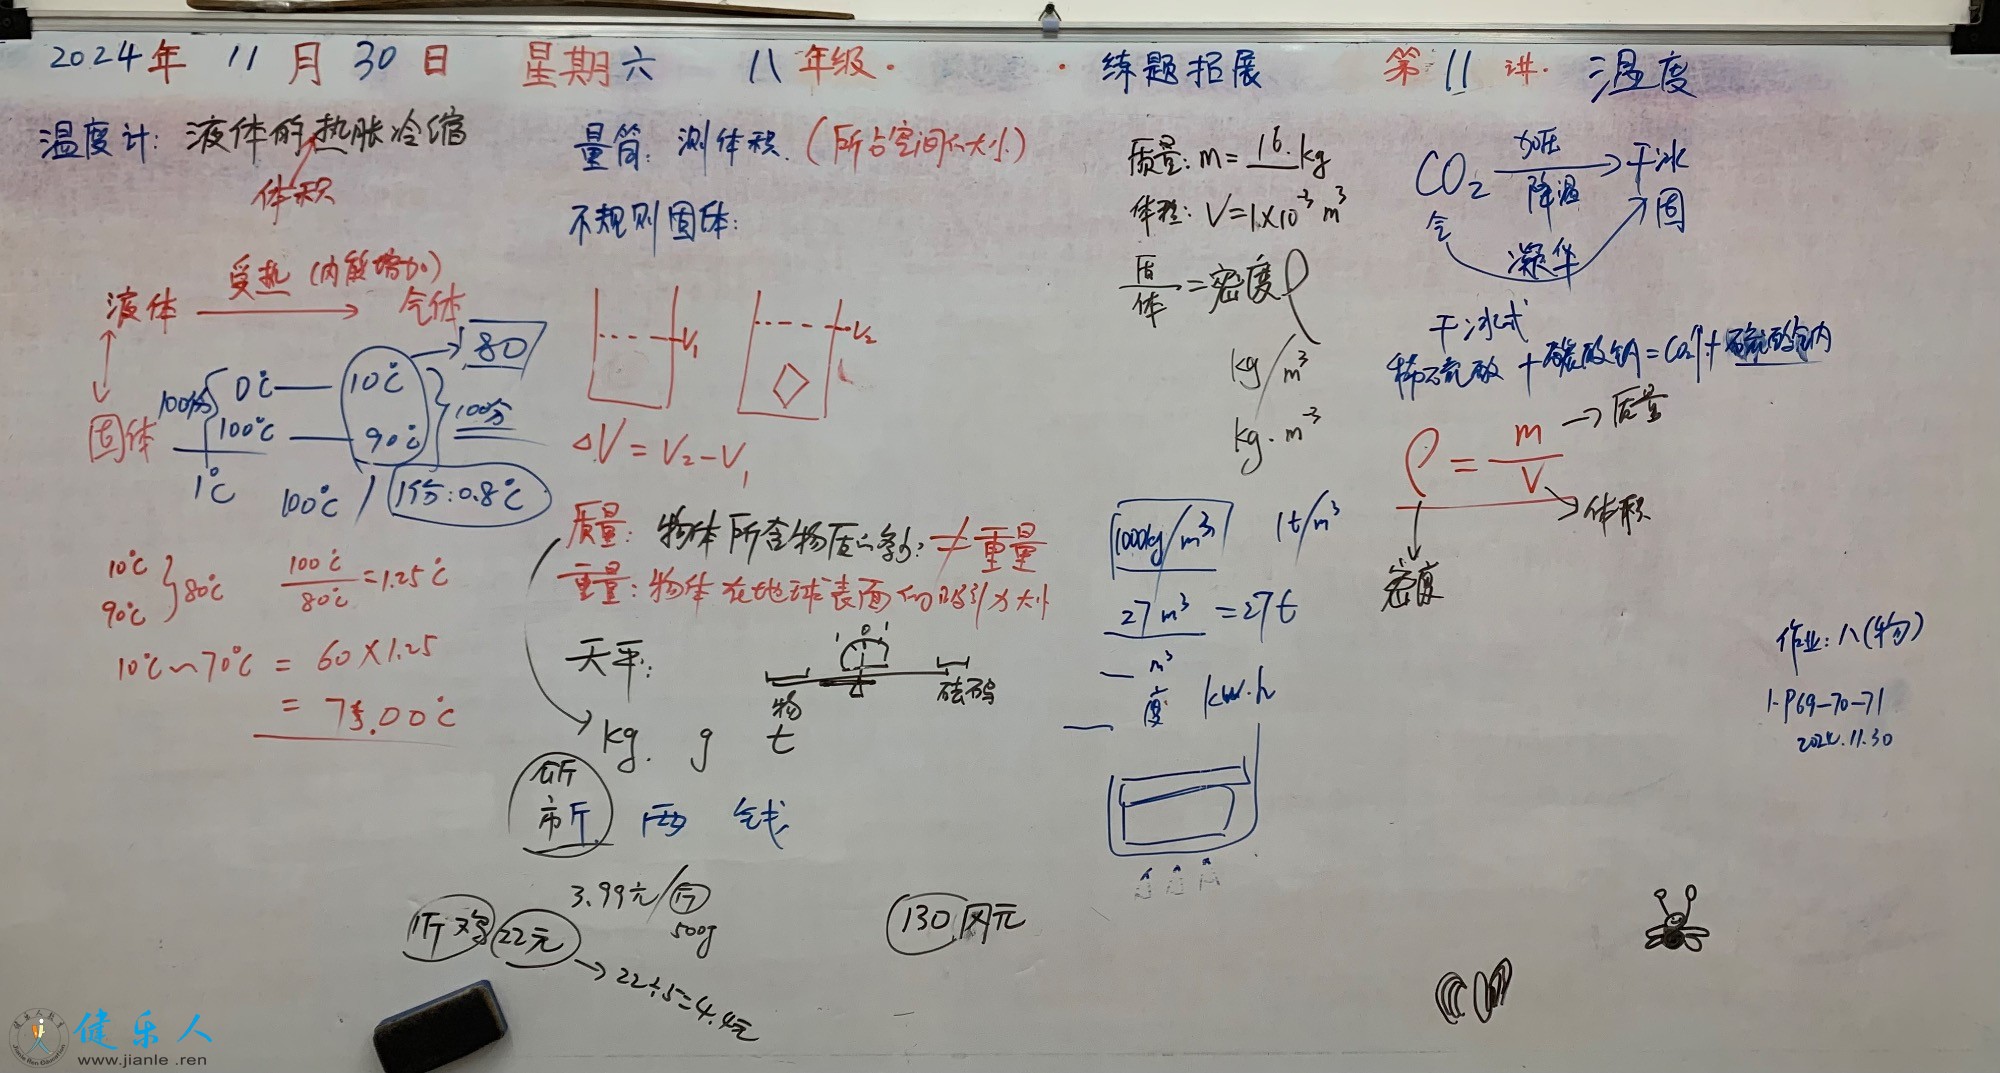 2024年 11月30日 星期六 八年级· · 练题拓展 第11讲· 温度
温度计: 液体的热胀冷缩
体积
受热 (内能增加)
液体 气体
固体
80
100份 0℃ 10℃
100℃ 90℃ 100份
1℃ 100℃ / 1份:0.8℃
10℃
90℃ 80℃
100℃/80℃ =1.25℃
10℃~70℃ = 60×1.25
= 75.00℃
量筒: 测体积 (所占空间的大小)
不规则固体:
V₁ V₂
△V = V₂-V₁
质量: 物体所含物质的多少 ≠重量
重量: 物体在地球表面的吸引力大小
天平:
1 0 1
物 砝码
kg. g t
公斤
市斤 两 钱
3.99元/斤
500g
22元
→22÷5=4.4元
130 元
质量: m= 16. kg
体积: V=1×10⁻³ m³
质/体 =密度ρ
kg/m³
kg·m⁻³
1000kg/m³ 1t/m³
27m³ =27t
m³
度 kw·h
CO₂ 加压 降温 → 干冰
气 固
凝华
干冰
稀硫酸 +碳酸钠=CO₂↑+硫酸钠
ρ = m/V
→质量
体积
密度
作业: 八(物)
1-P69-70-71
2024.11.30
健乐人
www.jianle.ren